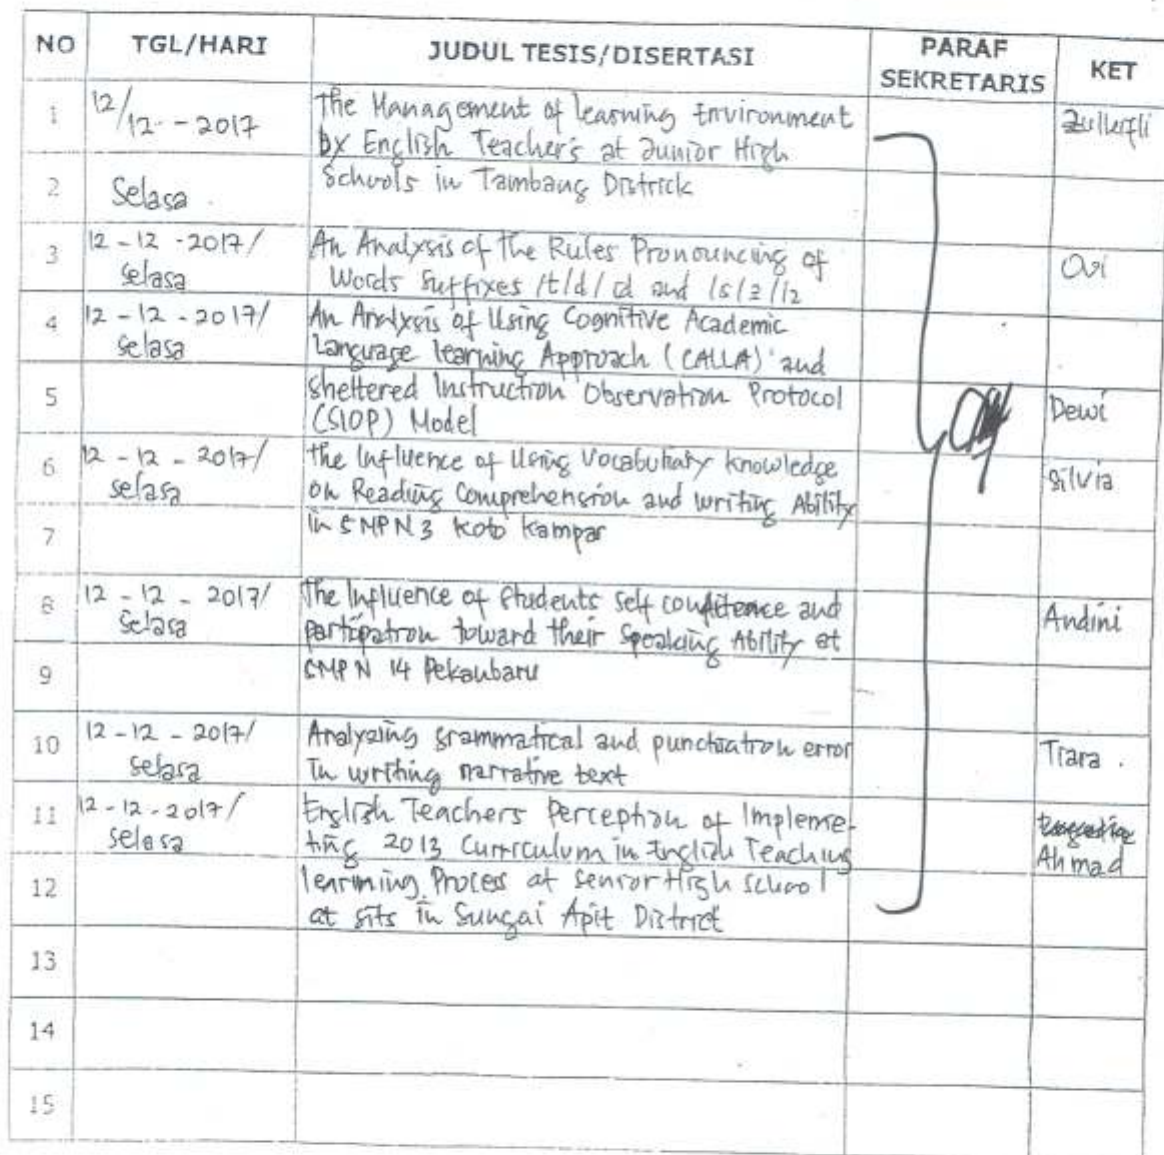 NO TGL/HARI JUDUL TESIS/DISERTASI PARAF SEKRETARIS KET
1 12/12 - 2017 The Management of learning Environment
by English Teacher's at Junior High
2 Selasa Schools in Tambang Districk
3 12-12-2017/ An Analysis of the Rules Pronouncing of Ovi
selasa Words Suffixes /t/d/ id and /s/z/iz
4 12-12-2017/ An Analysis of Using Cognitive Academic
selasa Language learning Approach (CALLA) and
5 Sheltered Instruction Observation Protocol Dewi
(SIOP) Model
6 12-12-2017/ the Influence of Using Vocabulary knowledge Silvia
selasa on Reading Comprehension and writing Ability
7 in SMPN 3 Koto Kampar
8 12-12-2017/ The Influence of Students self confitence and Andini
selasa partipation toward their Speaking Ability at
9 SMPN 14 Pekanbaru
10 12-12-2017/ Analyzing grammatical and punctuation error Tiara.
selasa In writing narrative text
11 12-12-2017/ English Teachers Perception of Impleme-
selasa ting 2013 Curriculum in English Teaching Ahmad
12 learning Process at Senior High school
at sits in Sungai Apit District
13
14
15